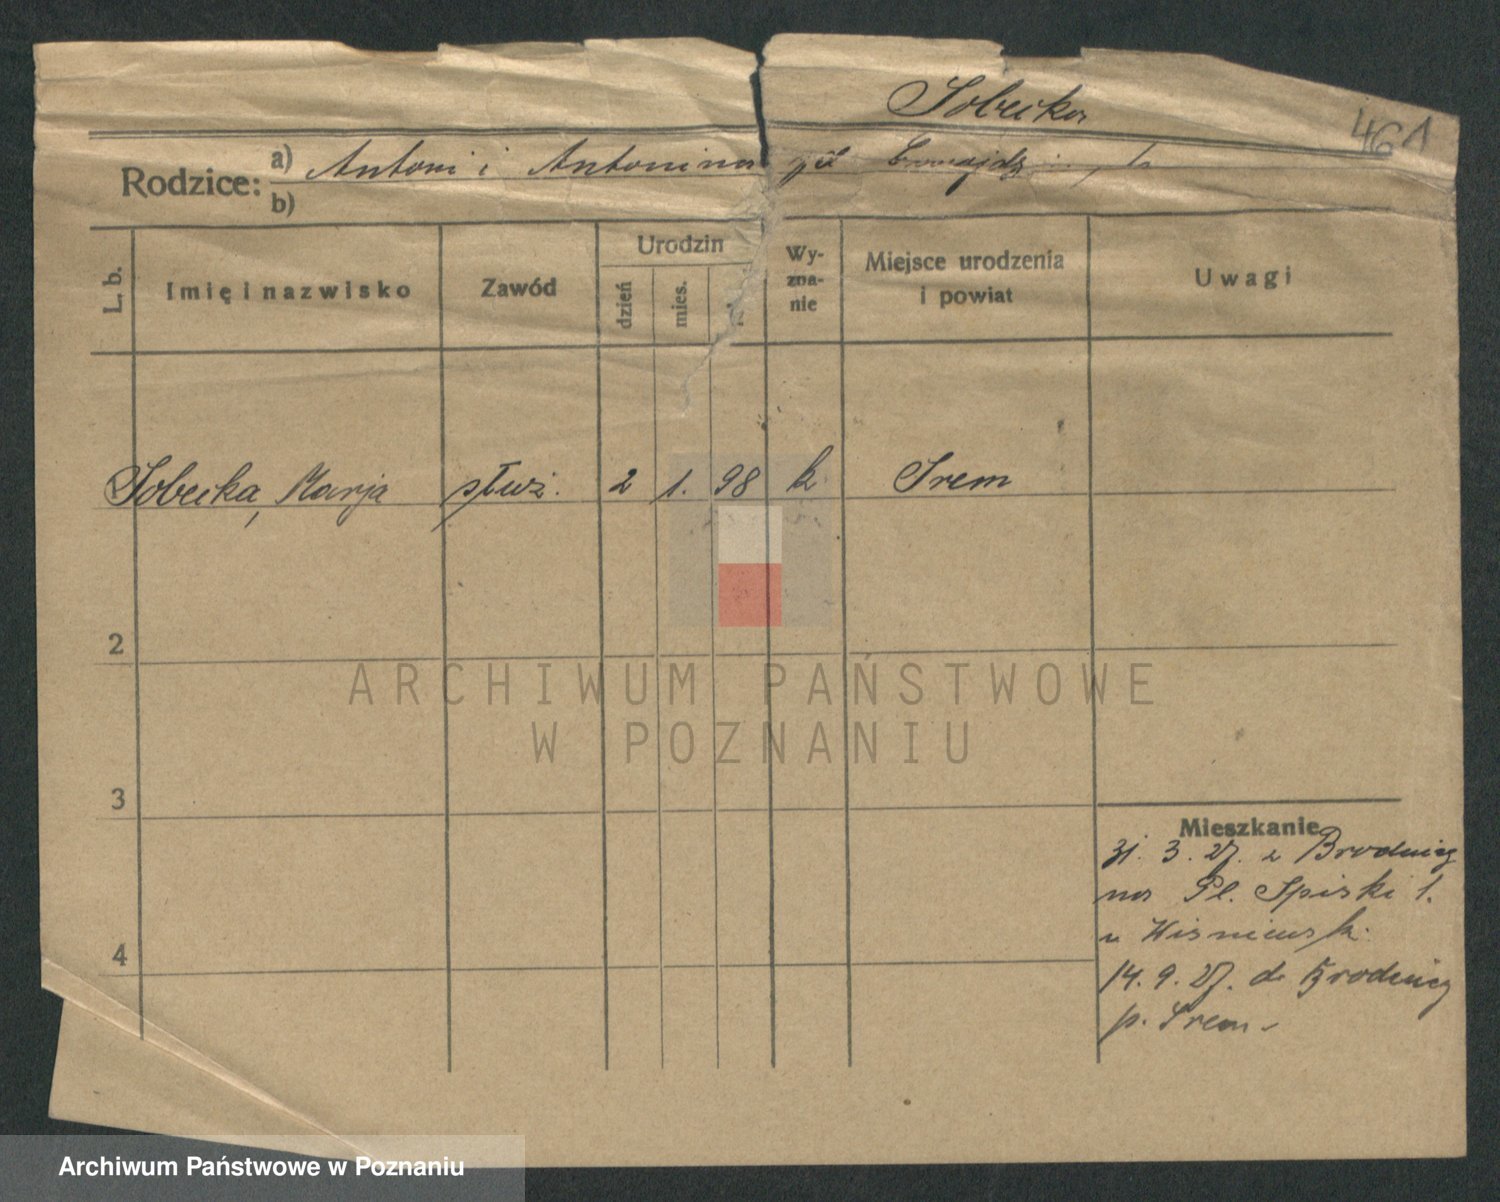 Sobecka
461
Rodzice:
a) Antoni i Antonina
b)
L. b.
Imię i nazwisko
Zawód
Urodzin
dzień
mies.
Wy-
zna-
nie
Miejsce urodzenia
i powiat
Uwagi
Sobecka, Marja służ. 2 1. 98 k. Śrem
2
3
4
Mieszkanie
31. 3. 27. z Brodnicy
na Pl. Spiski 1.
u Wiśniewsk.
14. 9. 27. do Brodnicy
p. Śrem
ARCHIWUM PAŃSTWOWE
W POZNANIU
Archiwum Państwowe w Poznaniu